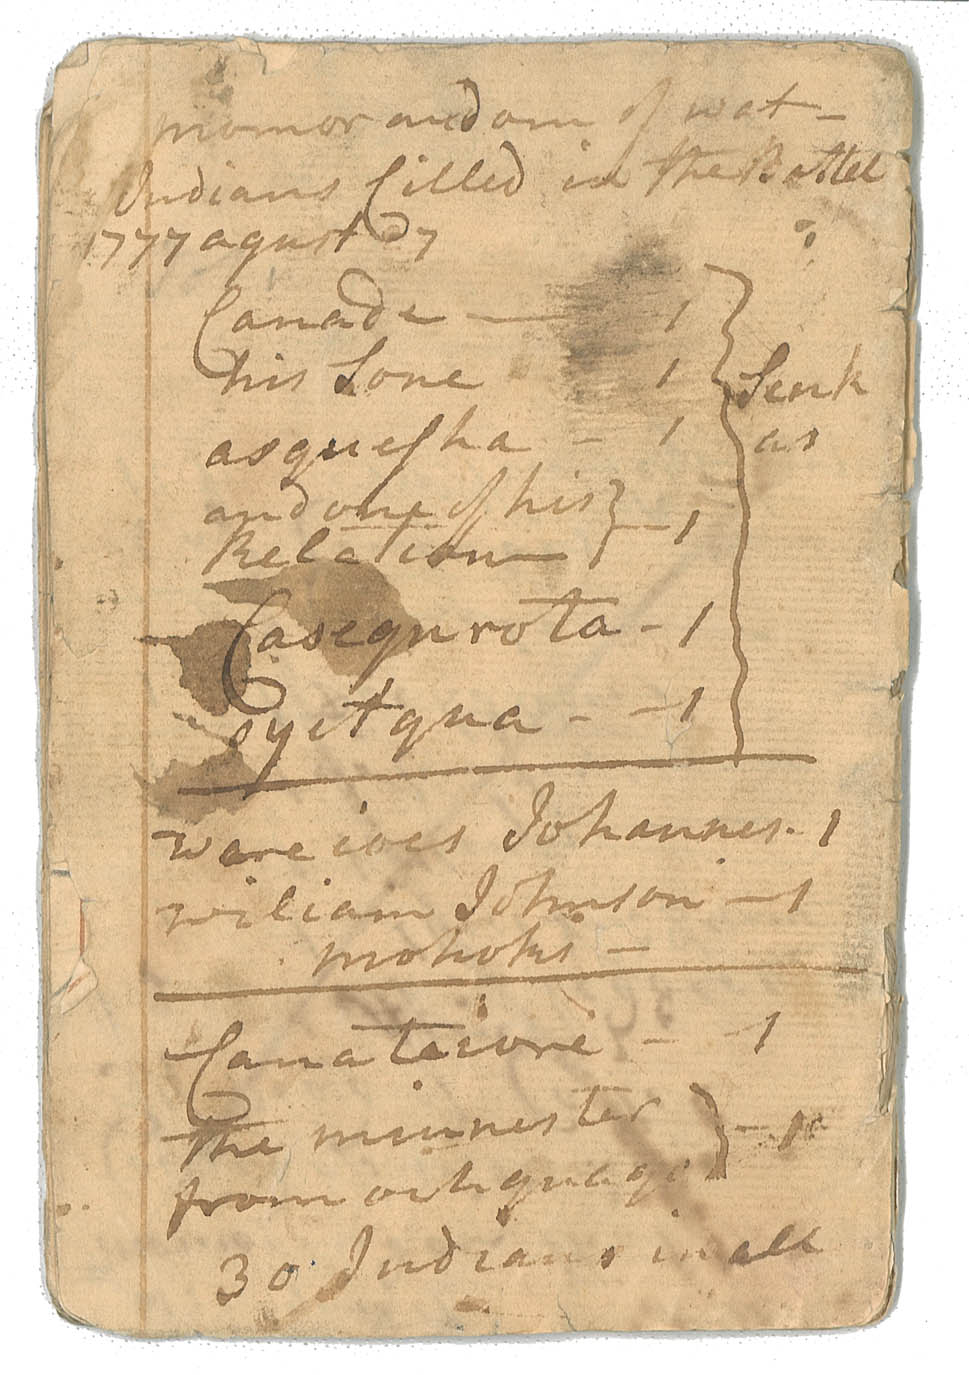 momorandom of wat
Indians Cilled in the Battel
1777 agust 07
Canade — 1
his Sone 1
asquesha - 1
and one of his
Relation — 1
Senk
as
Casequrota - 1
Syitqua - - 1
ware ioes Johannes. 1
wiliam Johnson - 1
mohoks -
Canateiore - 1
The minnester
from ochquage - 1
30 Indians in all